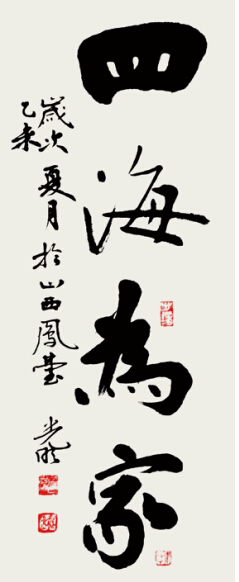 四海為家
歲次乙未夏月於山西鳳臺
光明